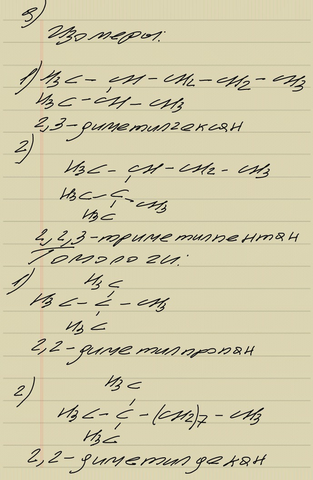 3)
Изомеры:
1) H3C – CH – CH2 – CH2 – CH3
H3C – CH – CH3
2,3-диметилгексан
2)
H3C – CH – CH2 – CH3
H3C – C – CH3
H3C
2,2,3-триметилпентан
Гомологи:
1) H3C
H3C – C – CH3
H3C
2,2-диметилпропан
2) H3C
H3C – C – (CH2)7 – CH3
H3C
2,2-диметилдекан